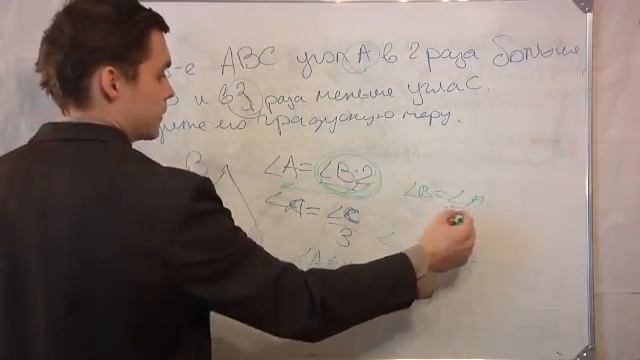 -е ABC угол A в 2 раза больше
и в 3 раза меньше угла C.
его градусную меру.
B
∠A = ∠B·2
∠B = ∠A
∠A = ∠C/3
∠
∠A